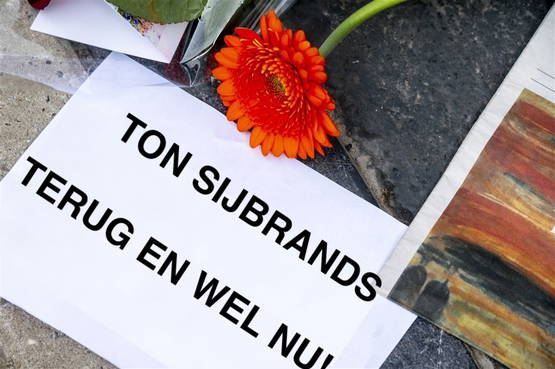 TON SIJBRANDS
TERUG EN WEL NU!